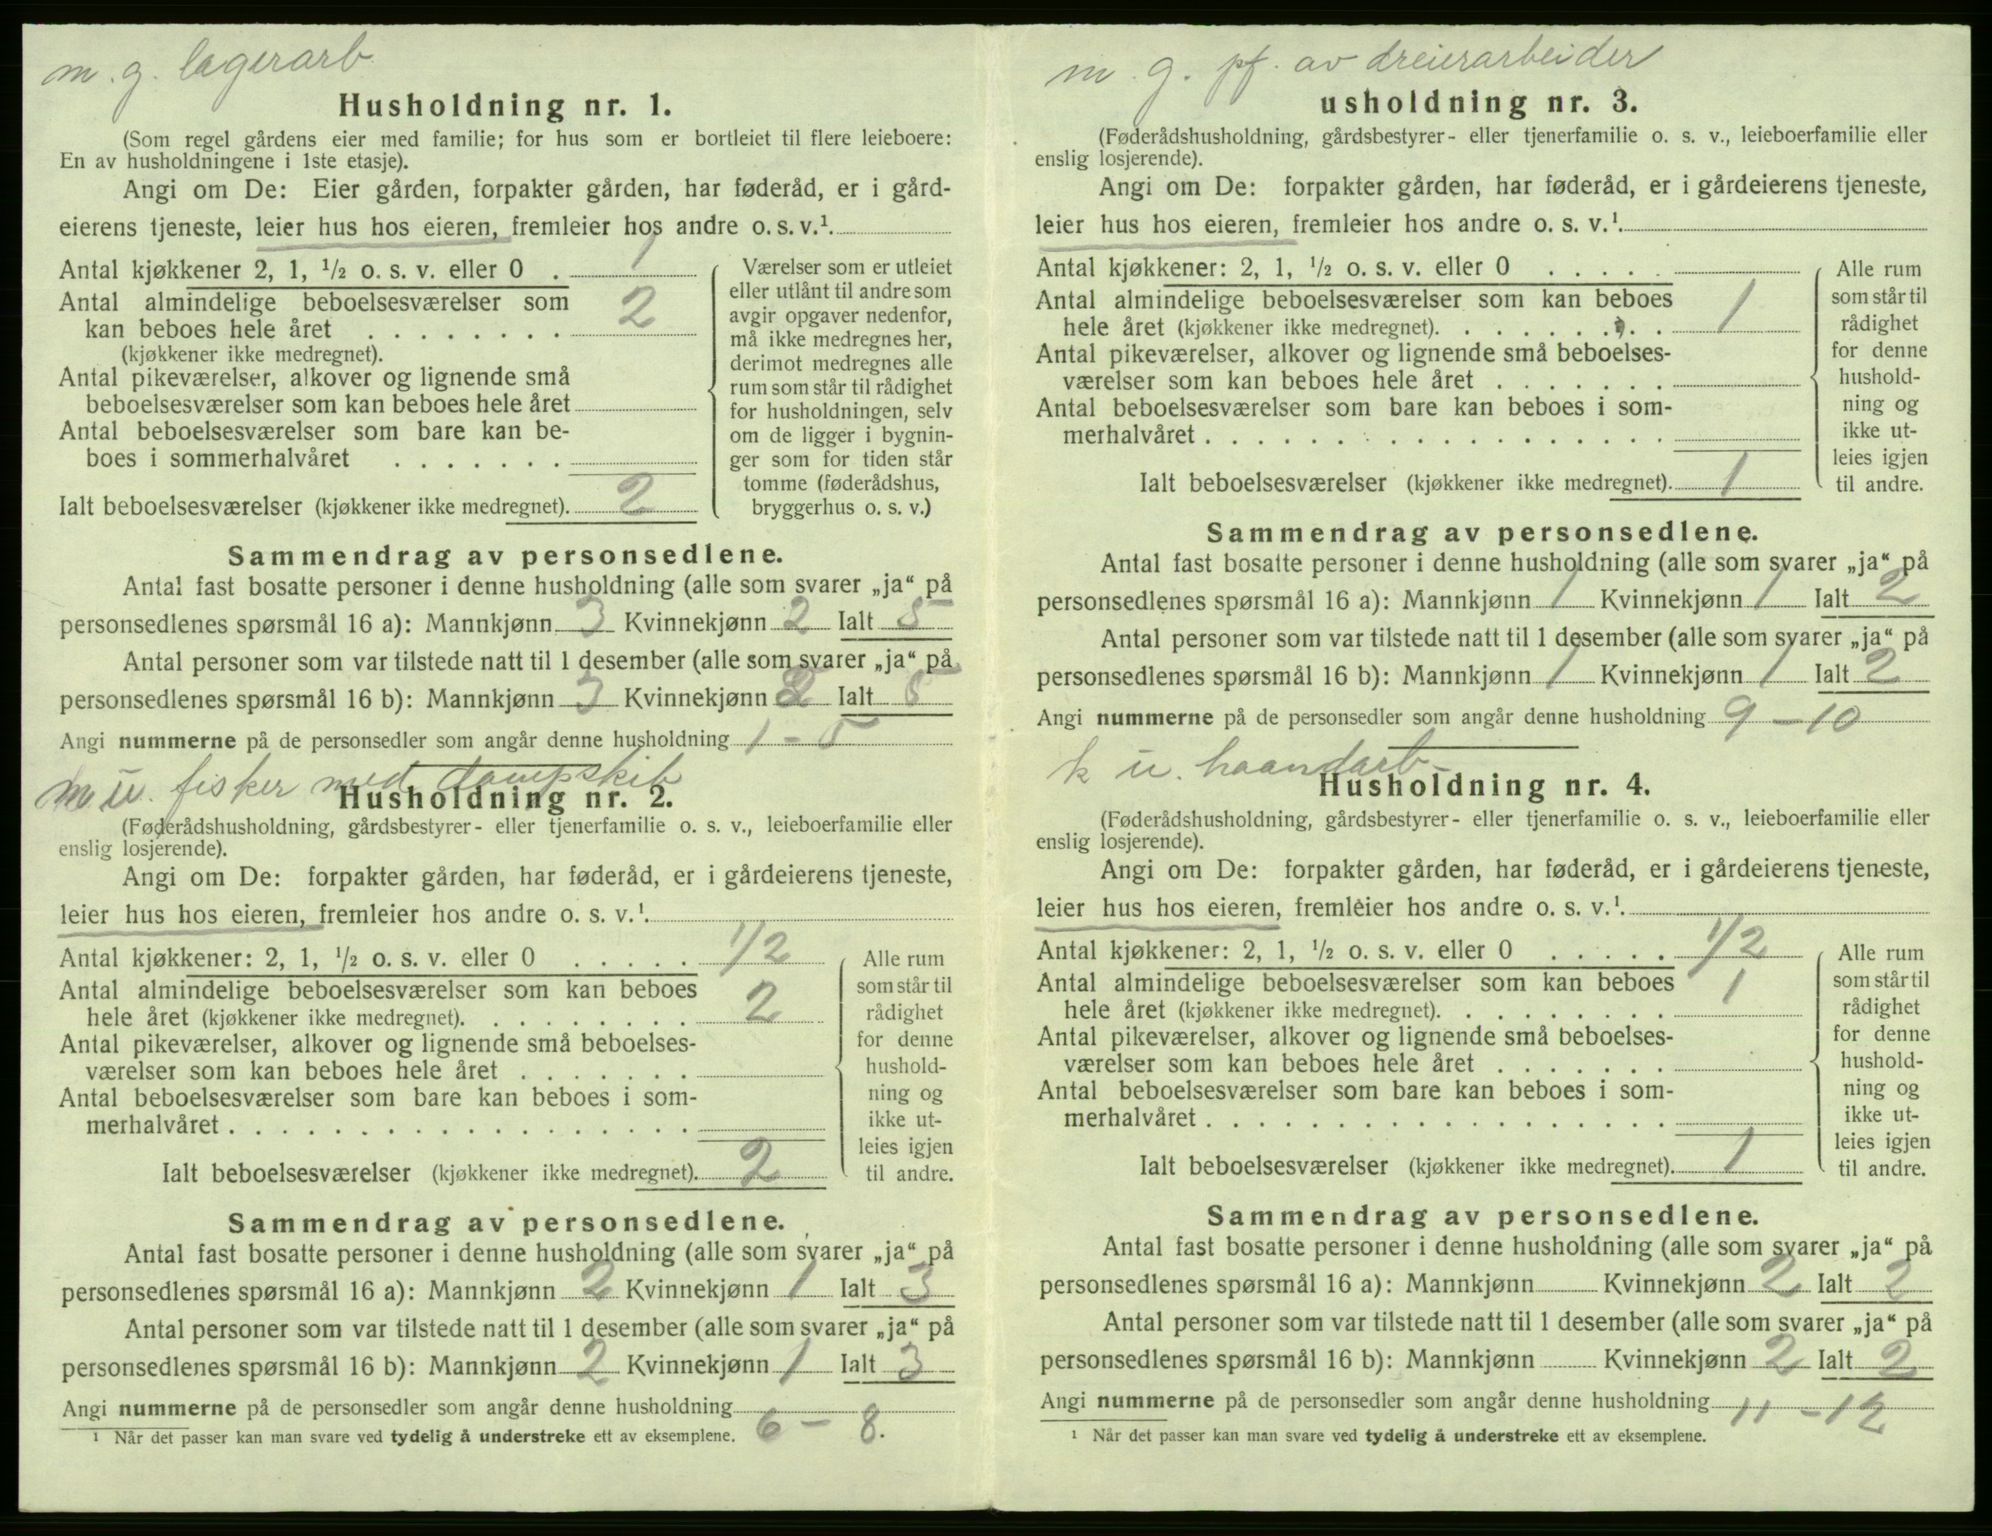 m. g. lagerarb.
Husholdning nr. 1.
(Som regel gårdens eier med familie; for hus som er bortleiet til flere leieboere:
En av husholdningene i 1ste etasje).
Angi om De: Eier gården, forpakter gården, har føderåd, er i gård-
eierens tjeneste, leier hus hos eieren, fremleier hos andre o. s. v.¹
Antal kjøkkener 2, 1, ½ o. s. v. eller 0 . 1
Antal almindelige beboelsesværelser som
kan beboes hele året . . . . . . . . 2
(kjøkkener ikke medregnet).
Antal pikeværelser, alkover og lignende små
beboelsesværelser som kan beboes hele året
Antal beboelsesværelser som bare kan be-
boes i sommerhalvåret . . . . . . .
Ialt beboelsesværelser (kjøkkener ikke medregnet). 2
Værelser som er utleiet
eller utlånt til andre som
avgir opgaver nedenfor,
må ikke medregnes her,
derimot medregnes alle
rum som står til rådighet
for husholdningen, selv
om de ligger i bygnin-
ger som for tiden står
tomme (føderådshus,
bryggerhus o. s. v.)
Sammendrag av personsedlene.
Antal fast bosatte personer i denne husholdning (alle som svarer „ja“ på
personsedlenes spørsmål 16 a): Mannkjønn 3 Kvinnekjønn 2 Ialt 5
Antal personer som var tilstede natt til 1 desember (alle som svarer „ja“ på
personsedlenes spørsmål 16 b): Mannkjønn 3 Kvinnekjønn 2 Ialt 5
Angi nummerne på de personsedler som angår denne husholdning 1 - 5
m u. fisker med dampskib
Husholdning nr. 2.
(Føderådshusholdning, gårdsbestyrer- eller tjenerfamilie o. s. v., leieboerfamilie eller
enslig losjerende).
Angi om De: forpakter gården, har føderåd, er i gårdeierens tjeneste,
leier hus hos eieren, fremleier hos andre o. s. v.¹.
Antal kjøkkener: 2, 1, ½ o. s. v. eller 0 . . . . . 1/2
Antal almindelige beboelsesværelser som kan beboes
hele året (kjøkkener ikke medregnet). . . . . . . . . 2
Antal pikeværelser, alkover og lignende små beboelses-
værelser som kan beboes hele året . . . . . . .
Antal beboelsesværelser som bare kan beboes i som-
merhalvåret . . . . . . . . . . . . . . . . . .
Ialt beboelsesværelser (kjøkkener ikke medregnet). 2
Alle rum
som står til
rådighet
for denne
hushold-
ning og
ikke ut-
leies igjen
til andre.
Sammendrag av personsedlene.
Antal fast bosatte personer i denne husholdning (alle som svarer „ja“ på
personsedlenes spørsmål 16 a): Mannkjønn 2 Kvinnekjønn 1 Ialt 3
Antal personer som var tilstede natt til 1 desember (alle som svarer „ja“ på
personsedlenes spørsmål 16 b): Mannkjønn 2 Kvinnekjønn 1 Ialt 3
Angi nummerne på de personsedler som angår denne husholdning 6 - 8.
¹ Når det passer kan man svare ved tydelig å understreke ett av eksemplene.
m. g. pf. av dreierarbeider
usholdning nr. 3.
(Føderådshusholdning, gårdsbestyrer- eller tjenerfamilie o. s. v., leieboerfamilie eller
enslig losjerende).
Angi om De: forpakter gården, har føderåd, er i gårdeierens tjeneste,
leier hus hos eieren, fremleier hos andre o. s. v.¹.
Antal kjøkkener: 2, 1, ½ o. s. v. eller 0 . . . . .
Antal almindelige beboelsesværelser som kan beboes
hele året (kjøkkener ikke medregnet). . . . . . . . . 1
Antal pikeværelser, alkover og lignende små beboelses-
værelser som kan beboes hele året . . . . . . .
Antal beboelsesværelser som bare kan beboes i som-
merhalvåret . . . . . . . . . . . . . . . . . .
Ialt beboelsesværelser (kjøkkener ikke medregnet). 1
Alle rum
som står til
rådighet
for denne
hushold-
ning og
ikke ut-
leies igjen
til andre.
Sammendrag av personsedlene.
Antal fast bosatte personer i denne husholdning (alle som svarer „ja“ på
personsedlenes spørsmål 16 a): Mannkjønn 1 Kvinnekjønn 1 Ialt 2
Antal personer som var tilstede natt til 1 desember (alle som svarer „ja“ på
personsedlenes spørsmål 16 b): Mannkjønn 1 Kvinnekjønn 1 Ialt 2
Angi nummerne på de personsedler som angår denne husholdning 9 - 10
k u. haandarb-
Husholdning nr. 4.
(Føderådshusholdning, gårdsbestyrer- eller tjenerfamilie o. s. v., leieboerfamilie eller
enslig losjerende).
Angi om De: forpakter gården, har føderåd, er i gårdeierens tjeneste,
leier hus hos eieren, fremleier hos andre o. s. v.¹.
Antal kjøkkener: 2, 1, ½ o. s. v. eller 0 . . . . . 1/2
Antal almindelige beboelsesværelser som kan beboes
hele året (kjøkkener ikke medregnet). . . . . . . . . 1
Antal pikeværelser, alkover og lignende små beboelses-
værelser som kan beboes hele året . . . . . . .
Antal beboelsesværelser som bare kan beboes i som-
merhalvåret . . . . . . . . . . . . . . . . . .
Ialt beboelsesværelser (kjøkkener ikke medregnet). 1
Alle rum
som står til
rådighet
for denne
hushold-
ning og
ikke ut-
leies igjen
til andre.
Sammendrag av personsedlene.
Antal fast bosatte personer i denne husholdning (alle som svarer „ja“ på
personsedlenes spørsmål 16 a): Mannkjønn Kvinnekjønn 2 Ialt 2
Antal personer som var tilstede natt til 1 desember (alle som svarer „ja“ på
personsedlenes spørsmål 16 b): Mannkjønn Kvinnekjønn 2 Ialt 2
Angi nummerne på de personsedler som angår denne husholdning 11 - 12
¹ Når det passer kan man svare ved tydelig å understreke ett av eksemplene.